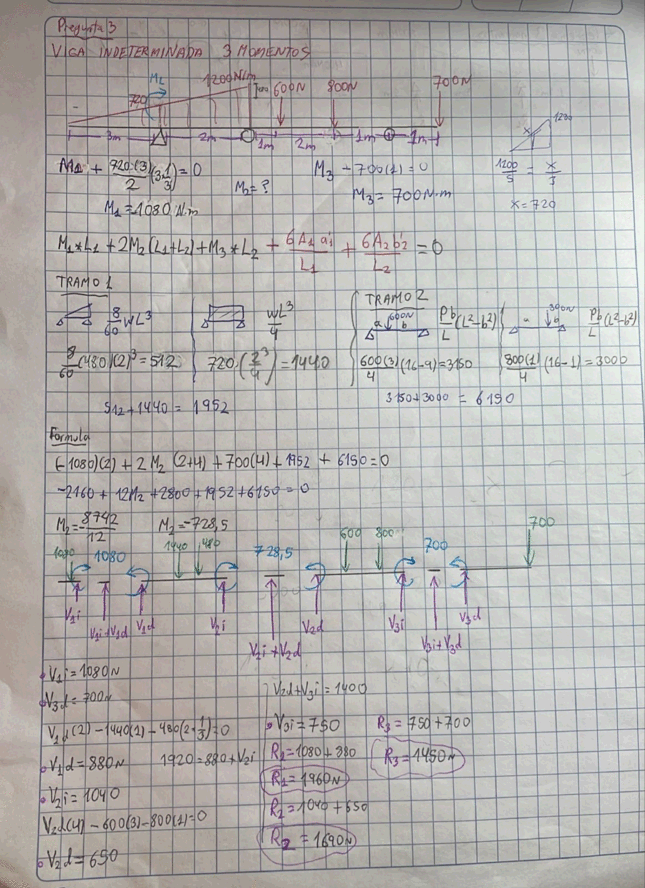 Pregunta 3
VIGA INDETERMINADA 3 MOMENTOS
M2 1200N/m 600N 800N 700N
720
3m 2m 1m 2m 1m 1m
1200
x
M1 + 720·(3)/2 (3·1/3) = 0
M1 = 1080 N.m
M2 = ?
M3 - 700(1) = 0
M3 = 700N·m
1200/5 = x/3
x = 720
M1*L1 + 2M2(L1+L2) + M3*L2 + 6A1a1/L1 + 6A2b2/L2 = 0
TRAMO 1
8/60 WL³
WL³/4
TRAMO 2
a 600N b Pb/L (L²-b²)
Pb/L (L²-b²)
8/60 (480)(2)³ = 512
720·(2³/4) = 1440
600(3)/4 (16-9) = 3150
800(1)/4 (16-1) = 3000
512 + 1440 = 1952
3150+3000 = 6150
Formula
(-1080)(2) + 2M2 (2+4) + 700(4) + 1952 + 6150 = 0
-2160 + 12M2 + 2800 + 1952 + 6150 = 0
M2 = -8742/12 M2 = -728,5
1080 1080 1440 480 728,5 600 800 700 700
V1i V1i+V1d V1d V2i V2i+V2d V2d V3i V3i+V3d V3d
V1i = 1080N
V3d = 700N
V1d(2) - 1440(1) - 480(2·1/3) = 0
V1d = 880N 1920 = 880 + V2i
V2i = 1040
V2d(4) - 600(3) - 800(1) = 0
V2d = 650
V2d + V3i = 1400
V3i = 750
R1 = 1080 + 880
R1 = 1960N
R2 = 1040 + 650
R2 = 1690N
R3 = 750 + 700
R3 = 1450N